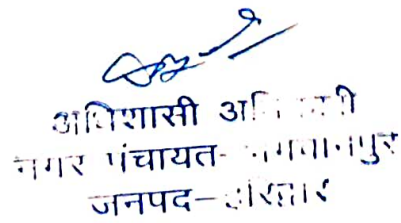 अधिशासी अधिकारी
नगर पंचायत- भगवानपुर
जनपद-हरिद्वार